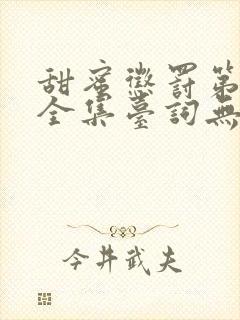 甜蜜懲罰第
全集臺詞無
今井武夫